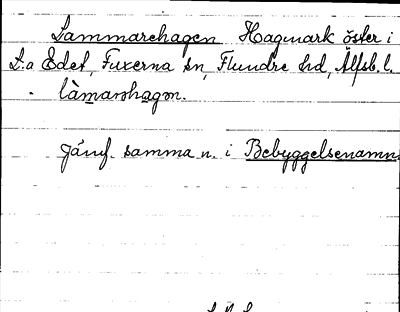 Lammarehagen Hagmark öster i
L:a Edet, Fuxerna sn, Flundre hd, Älfsb. l.
làmarshagen.
Jämf. samma n. i Bebyggelsenamn.